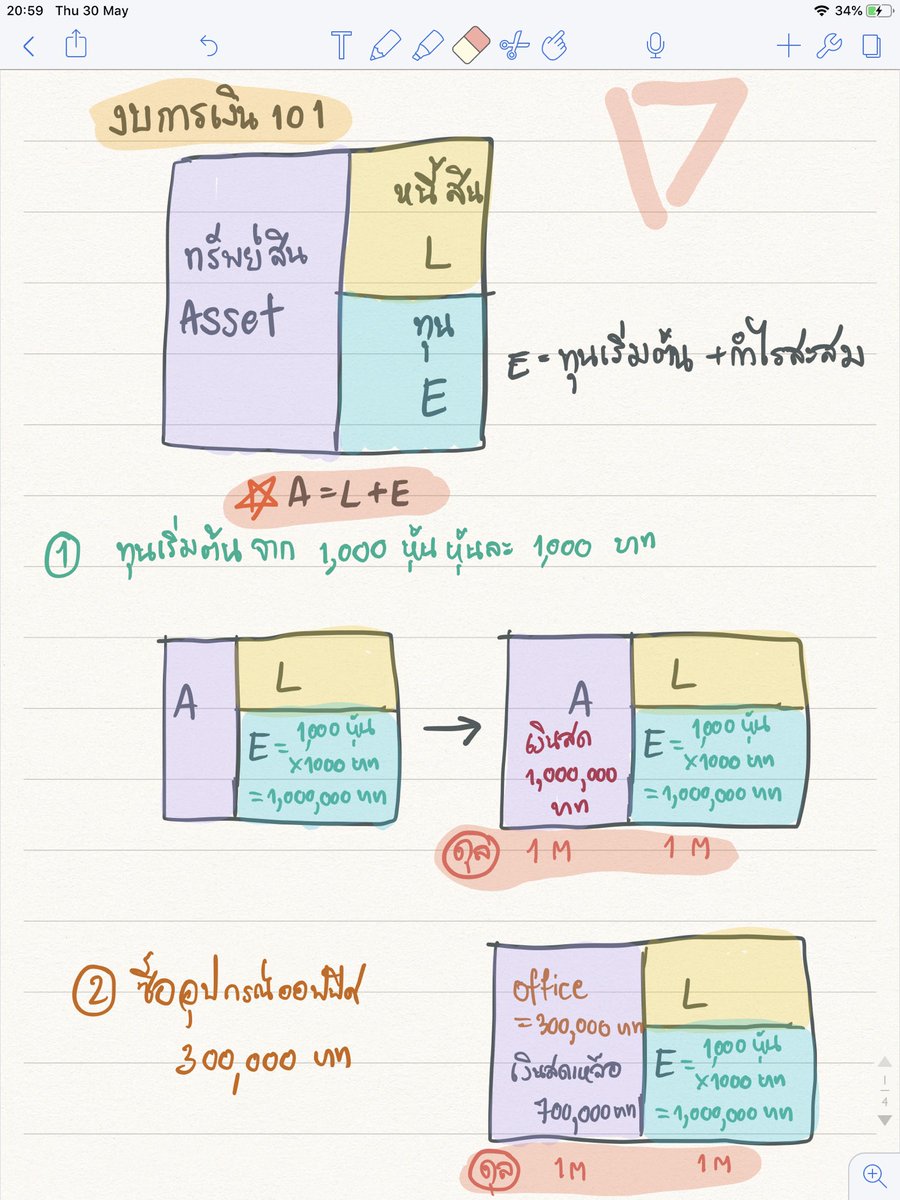 20:59 Thu 30 May
34%
T
งบการเงิน 101
ทรัพย์สิน
Asset
หนี้สิน
L
ทุน
E
E = ทุนเริ่มต้น + กำไรสะสม
A = L + E
1 ทุนเริ่มต้น จาก 1,000 หุ้น หุ้นละ 1,000 บาท
A
L
E = 1,000 หุ้น
×1000 บาท
= 1,000,000 บาท
A
เงินสด
1,000,000
บาท
L
E = 1,000 หุ้น
×1000 บาท
= 1,000,000 บาท
ดุล 1 M 1 M
2 ซื้ออุปกรณ์ออฟฟิศ
300,000 บาท
office
= 300,000 บาท
เงินสดเหลือ
700,000 บาท
L
E = 1,000 หุ้น
×1000 บาท
= 1,000,000 บาท
ดุล 1M 1M
1
4